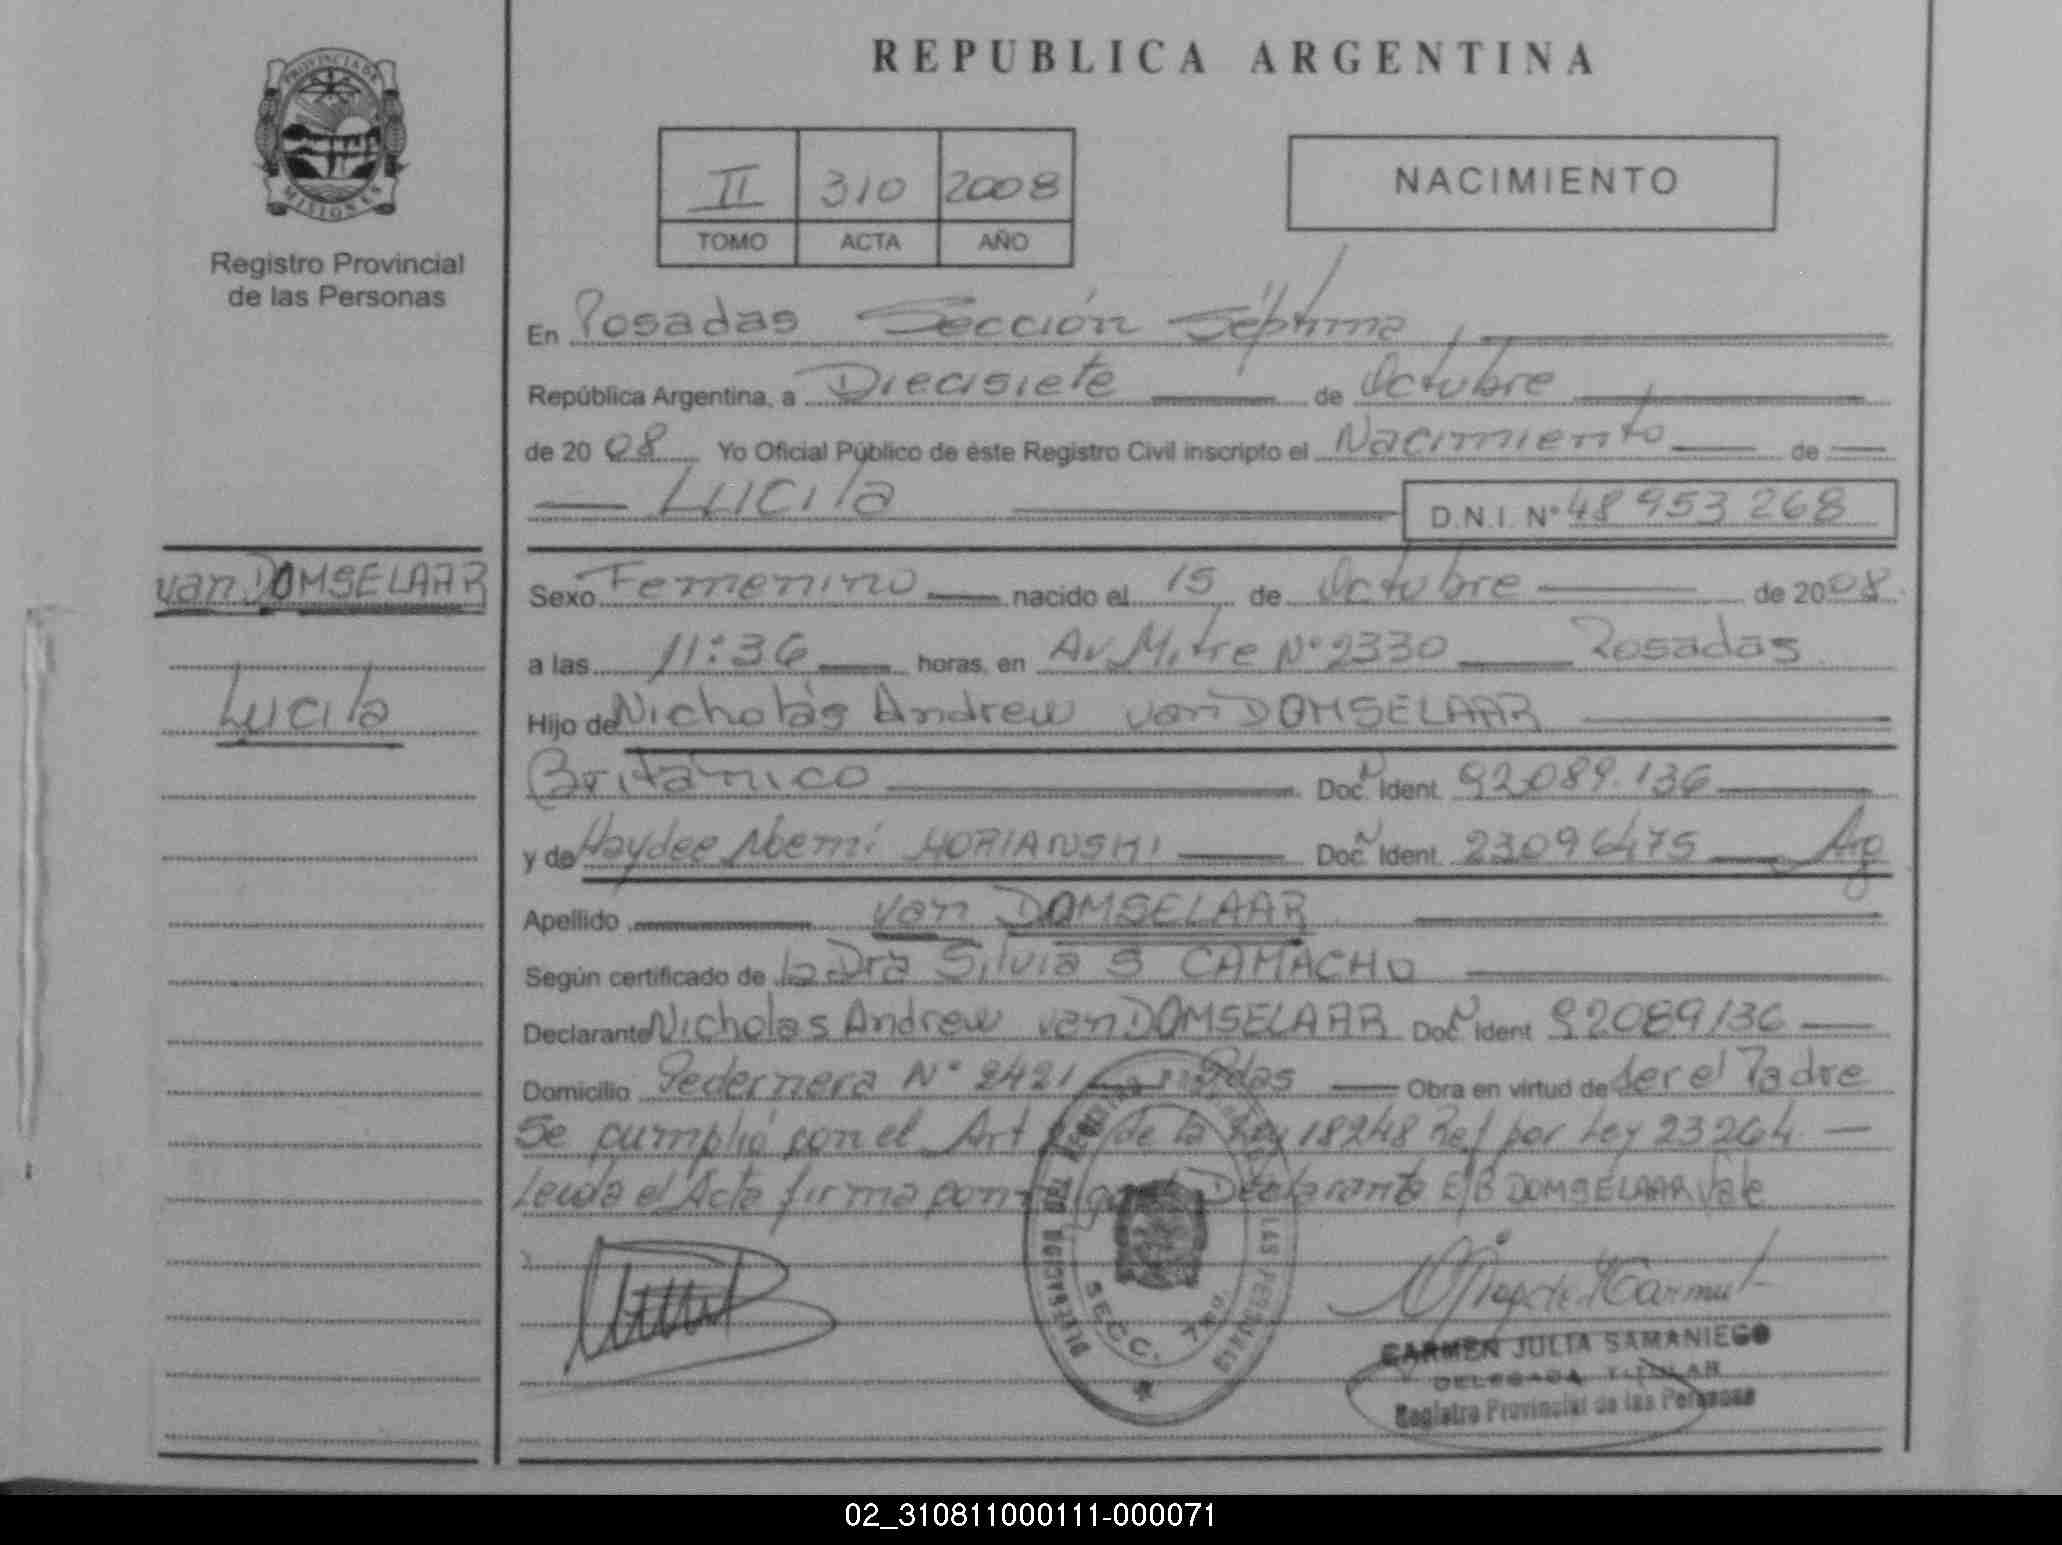 REPUBLICA ARGENTINA
PROVINCIA DE MISIONES
Registro Provincial
de las Personas
II 310 2008
TOMO ACTA AÑO
NACIMIENTO
En Posadas Sección Séptima,
República Argentina, a Diecisiete de Octubre
de 2008 Yo Oficial Público de éste Registro Civil inscripto el Nacimiento de
Lucila D.N.I. Nº 48 953 268
van DOMSELAAR
Lucila
Sexo Femenino nacido el 15 de Octubre de 2008
a las 11:36 horas, en Av. Mitre Nº 2330 Posadas
Hijo de Nicholás Andrew van DOMSELAAR
Británico Doc. Ident. 92.089.136
y de Haydee Noemí Doc. Ident. 23096475 Arg
Apellido van DOMSELAAR
Según certificado de la Dra Silvia S CAMACHO
Declarante Nicholas Andrew van DOMSELAAR Doc. Ident 92089136
Domicilio Pedernera Nº 2421 Pdas Obra en virtud de ser el Padre
Se cumplió con el Art de la Ley 18248 Ref por Ley 23264
Leida el Acta firma conmigo el Declarante E/B DOMSELAAR Vale
SECC. 7ma.
LAS PERSONAS
CARMEN JULIA SAMANIEGO
DELEGADA TITULAR
Registro Provincial de las Personas
02_310811000111-000071